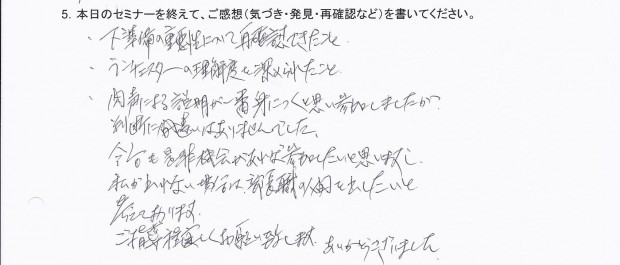 5. 本日のセミナーを終えて、ご感想(気づき・発見・再確認など)を書いてください。
・下準備の重要性について再確認できたこと
・ランチェスターの理解度を深められたこと
・関声による説明が一番身につくと思い参加しましたが、
判断に間違いはありませんでした。
今后も是非機会があれば参加したいと思いますし、
私が出れない場合は、部長職の人間を出したいと
考えております。
ご指導程宜しくお願い致します。ありがとうございました